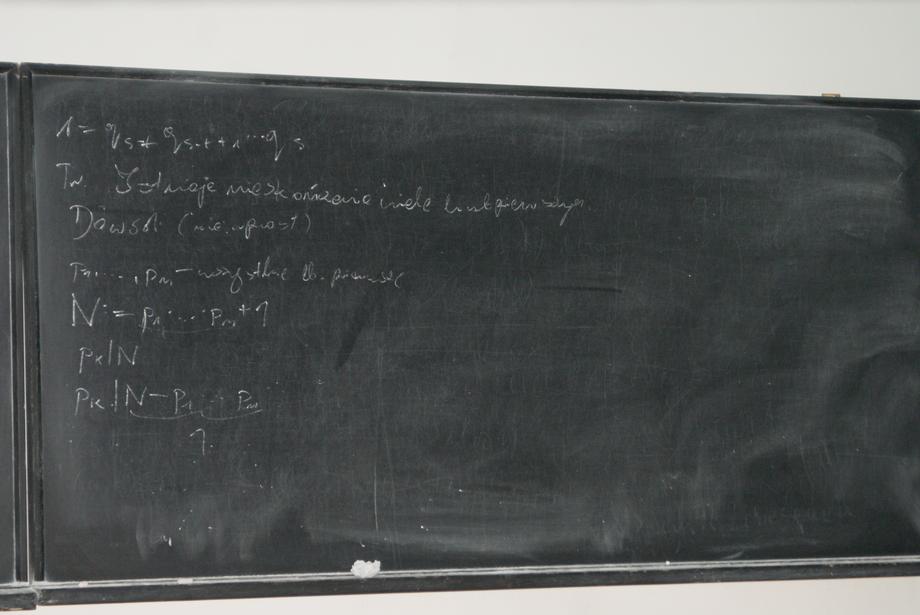 1 = q s+ q s+1 ... q s
Tw. Istnieje nieskończenie wiele liczb pierwszych.
Dowód: (nie wprost)
p1, ..., pm - wszystkie lb. pierwsze
N := p1 ... pm + 1
pk | N
pk | N - p1 ... pm
1